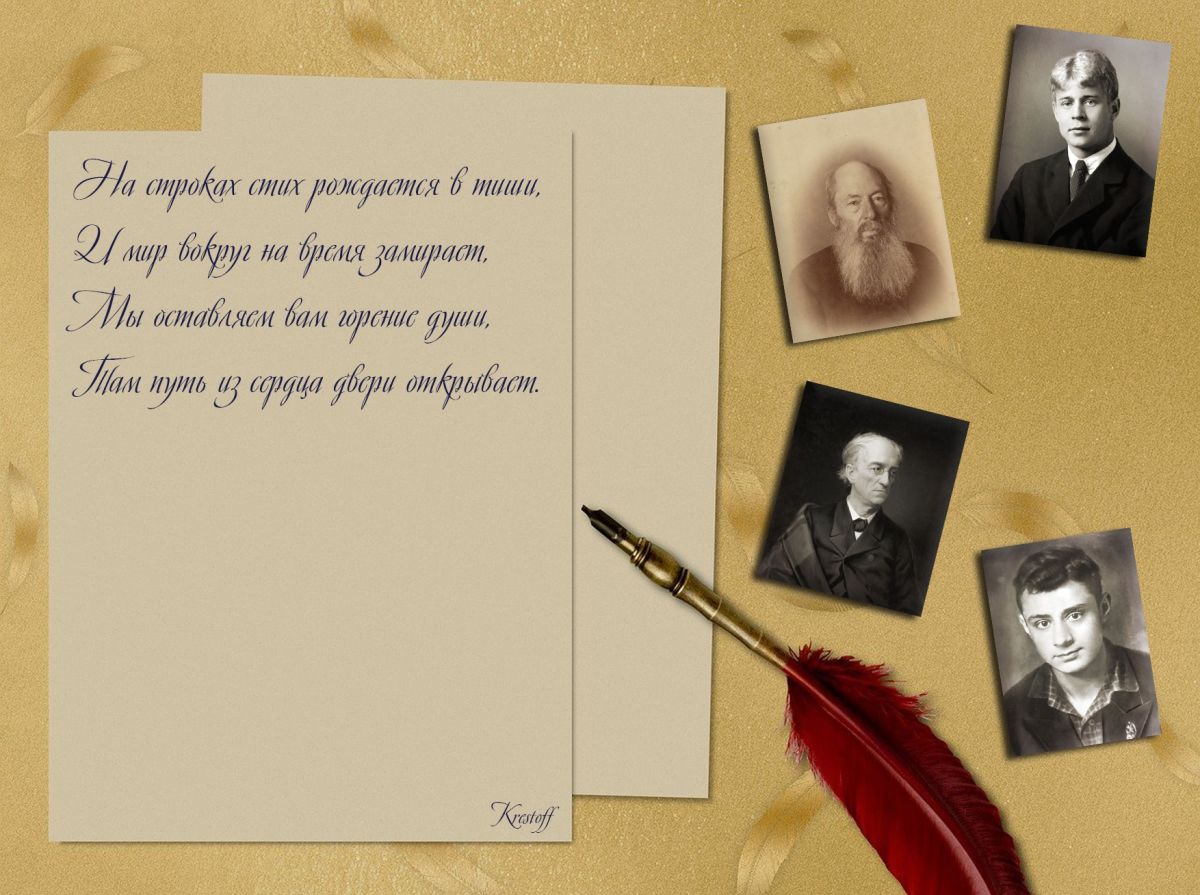 На строках стих рождается в тиши,
И мир вокруг на время замирает,
Мы оставляем вам горение души,
Там путь из сердца двери открывает.
Krestoff